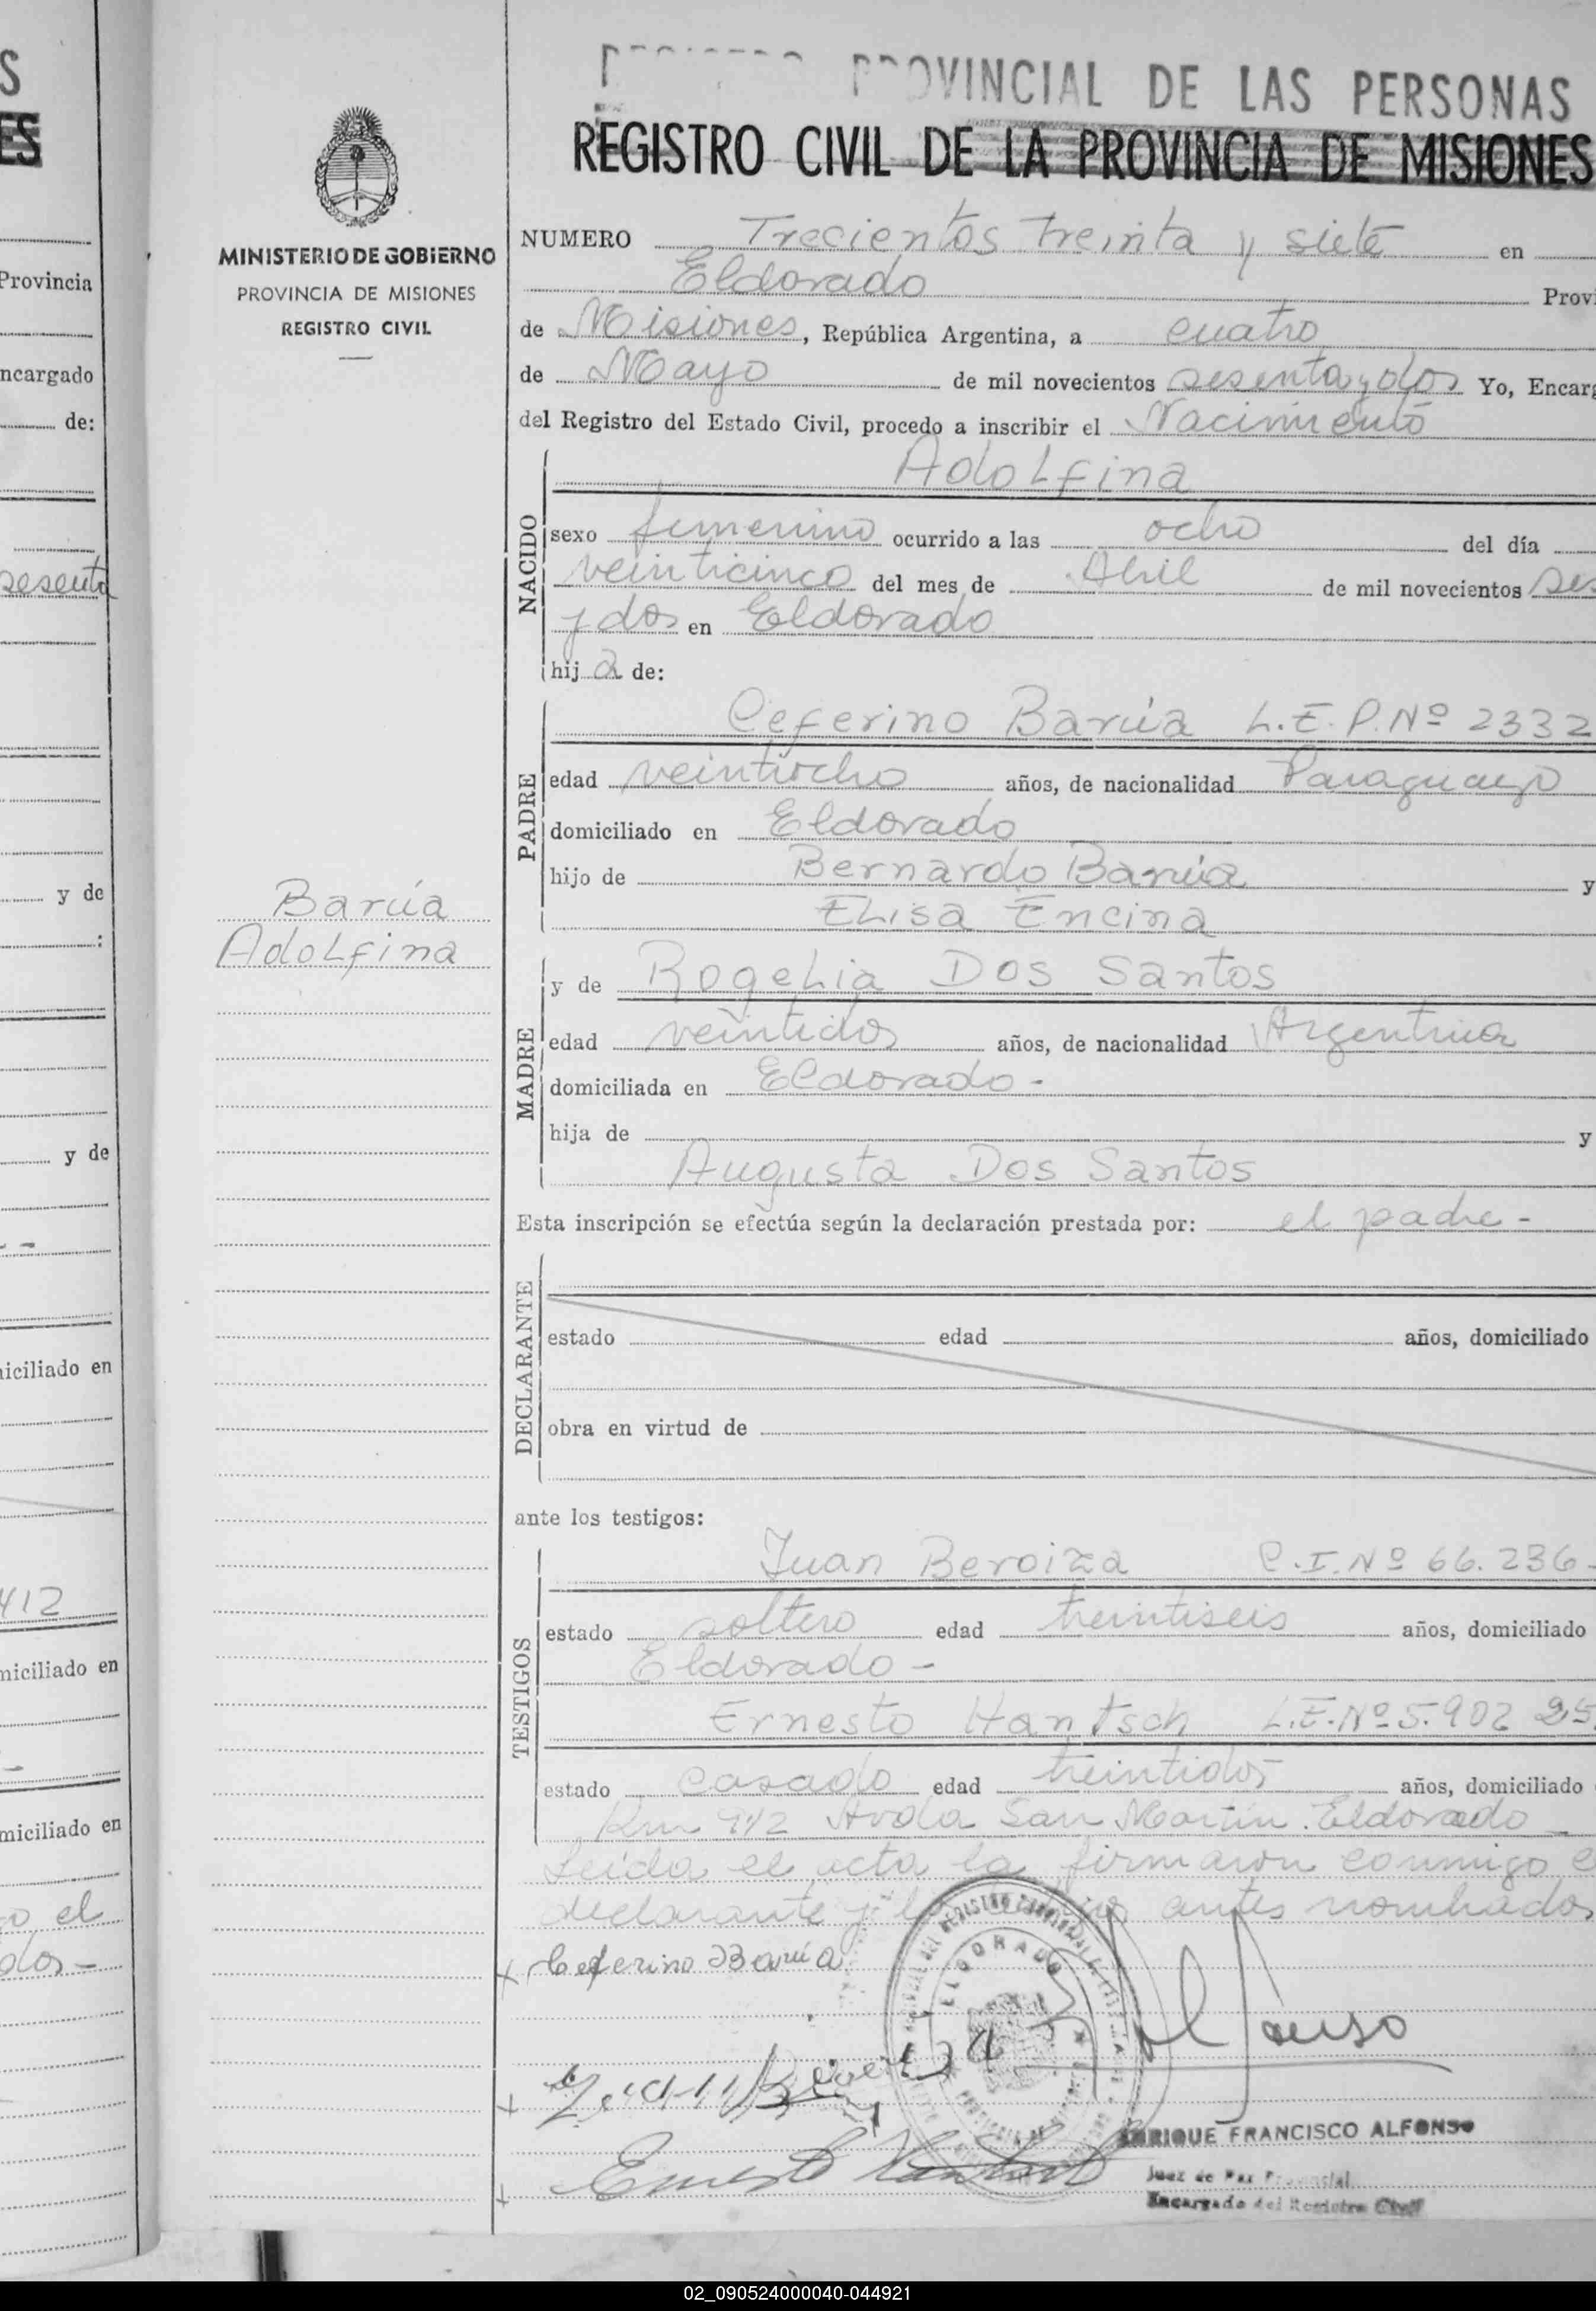 S
ES
Provincia
ncargado
de:
sesenta
y de
:
y de
niciliado en
412
niciliado en
niciliado en
o el
dos-
MINISTERIO DE GOBIERNO
PROVINCIA DE MISIONES
REGISTRO CIVIL
Barúa
Adolfina
PROVINCIAL DE LAS PERSONAS
REGISTRO CIVIL DE LA PROVINCIA DE MISIONES
NUMERO Trecientos treinta y siete en
Eldorado Provi
de Misiones, República Argentina, a cuatro
de Mayo de mil novecientos sesenta y dos Yo, Encarg
del Registro del Estado Civil, procedo a inscribir el Nacimiento
NACIDO
Adolfina
sexo femenino ocurrido a las ocho del día
veinticinco del mes de Abril de mil novecientos ses
y dos en Eldorado
hija de:
PADRE
Ceferino Barúa L.E.P.Nº 2332
edad veintiocho años, de nacionalidad Paraguayo
domiciliado en Eldorado
hijo de Bernardo Barúa y
Elisa Encina
MADRE
y de Rogelia Dos Santos
edad veintidos años, de nacionalidad Argentina
domiciliada en Eldorado-
hija de y
Augusta Dos Santos
Esta inscripción se efectúa según la declaración prestada por: el padre-
DECLARANTE
estado edad años, domiciliado
obra en virtud de
ante los testigos:
TESTIGOS
Juan Beroiza C.I.Nº 66.236-
estado soltero edad treintiseis años, domiciliado
Eldorado-
Ernesto Hantsch L.E.Nº 5.902 25
estado casado edad treintidos años, domiciliado
Km 9 1/2 Avda San Martín Eldorado
Leida el acta la firmaron conmigo e
declarante y antes nombrados
x Ceferino Barúa
ELDORADO
Alfonso
x Juan Beroiza
ENRIQUE FRANCISCO ALFONSO
x Ernesto Hantsch
Juez de Paz Provincial
Encargado del Registro Civil
02_090524000040-044921